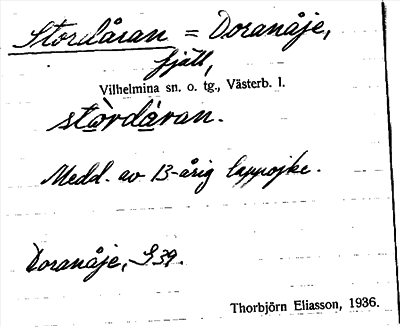 Stordåran = Doranåje,
fjäll,
Vilhelmina sn. o. tg., Västerb. l.
stòrdåran.
Medd. av 13-årig lappojke.
Doranåje, S39.
Thorbjörn Eliasson, 1936.